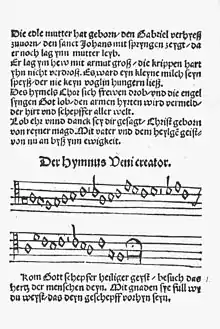 Die edle mutter hat geborn, den Gabriel verhyeß
zuuorn, den sanct Johans mit springen zeygt, da
er noch lag ynn mutter leyb.
Er lag ym hew mit armut groß, die krippen hart
yhn nicht verdroß. Es ward eyn kleyne milch seyn
speyß, der nie keyn voglin hungern ließ.
Des hymels Chor sich frewen drob, vnd die engel
syngen Got lob, den armen hyrten wird vermeld,
der hirt vnd schepffer aller welt.
Lob ehr vnd danck sey dir gesagt, Christ geborn
von reyner magd, Mit vater vnd dem heylgē geist,
von nu an byß ynn ewigkeit.
Der Hymnus Veni creator.
Kom Gott schepfer heiliger geyst, besuch das
hertz der menschen deyn, Mit gnaden sye full wie
du weyst, das deyn geschepff vorhyn seyn.